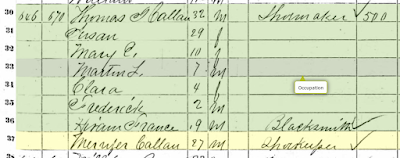 30 646 670 Thomas P Callan 32 m Shoemaker 500
31 Susan 29 f
32 Mary C. 10 f
33 Martin L. 7 m
34 Clara 4 f
35 Frederick 2 m
36 Hiram France 19 m Blacksmith
37 Callan 27 m
Occupation